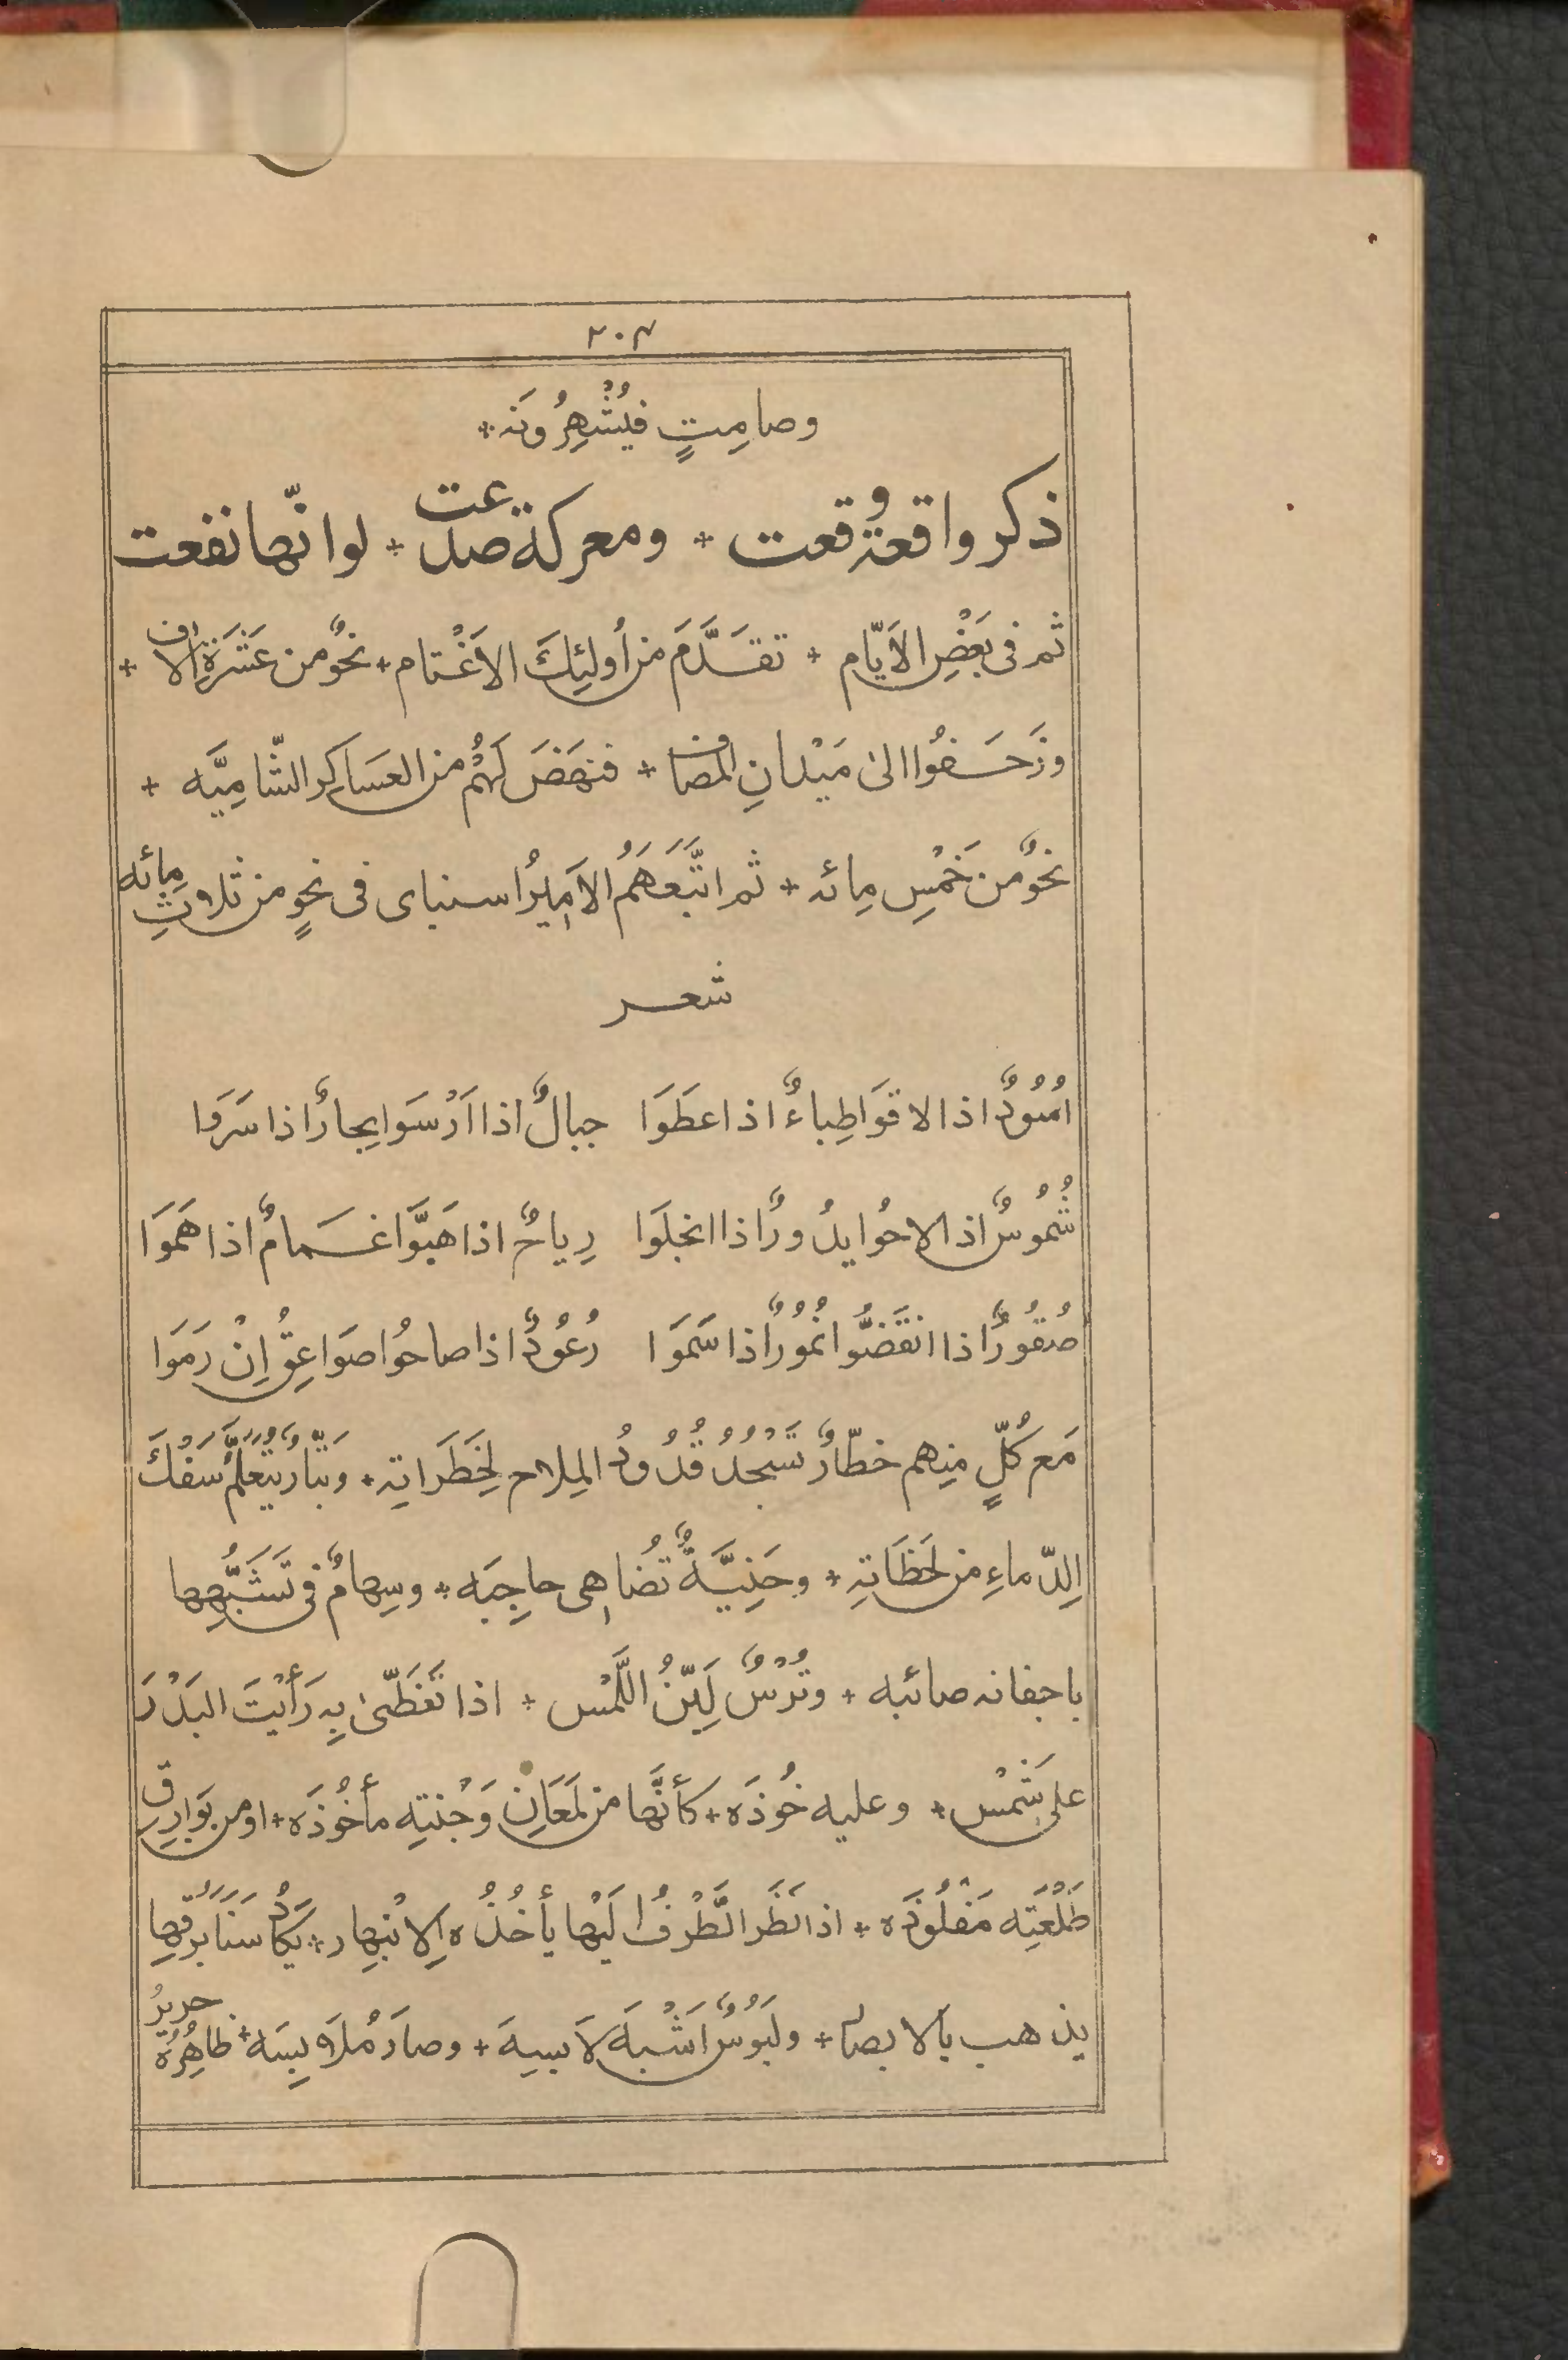 ٢٠٣
وصامِتٍ فيُشْهِرُونَه +
ذكر واقعة وقعت + ومعركة صدعت + لو انّها نفعت
ثم فى بَعْضِ الاَيّام + تقدَّمَ من اُولئِكَ الاَغْتام + نحوٌ من عَشَرَةِ الاف +
وزَحَفُوا الى مَيْدانِ المُصاف + فنهَضَ لَهُمْ من العَسَاكِر الشّامِيَّه +
نحوٌ من خَمْسِ مِائه + ثم اتَّبَعَهَمُ الاَمِيرُ اسنباى فى نحوٍ من ثلاثِ مِائه
شعر
اُسُوْدٌ اذا لاقَوَا ظِباءٌ اذا عطَوَا جبالٌ اذا اَرْسَوَا بحارٌ اذا سَرَوا
شُمُوسٌ اذا لاحُوا بدُورٌ اذا انجلَوَا رِياحٌ اذا هَبَّوَا غمامٌ اذا هَمَوَا
صُقُورٌ اذا انقَضُّوا نُمُوُرٌ اذا سَمَوَا رُعُوْدٌ اذا صاحُوا صوَاعِقُ اِنْ رَمَوَا
مَع كُلٍّ مِنهم خطّارٌ تَسْجُدُ قُدُودُ المِلاح لِخَطَرَاتِه + وبَتّارٌ يَتَعَلَّمُ سَفْكَ
الِدّماءِ من لَحَظَاتِه + وحَنِيَّةٌ تُضاهِى حاجِبَه + وسِهامٌ فى تَشَبُّهِها
باجفانه صائبه + وتُرْسٌ لَيِّنُ اللَّمْس + اذا تَغَطّىٰ بِه رَأَيْتَ البَدْرَ
على شَمْس + وعليه خُوذَه + كأَنَّها من لَمَعَانِ وَجْنتِه مأخُوذَه + او من بَوَارِقِ
طَلْعَتِه مَفْلُوذَه + اذا نَظَر الطَّرْفُ اليَها يأخُذُه الِانْبِهار + يَكادُ سَنَا بَرْقِها
يذهب بالابصار + ولَبُوْسٌ اَشْبَهَ لاَبِسِهَ + وصارَ مُلاَبِسَه + ظاهِرُهُ حريرٌ